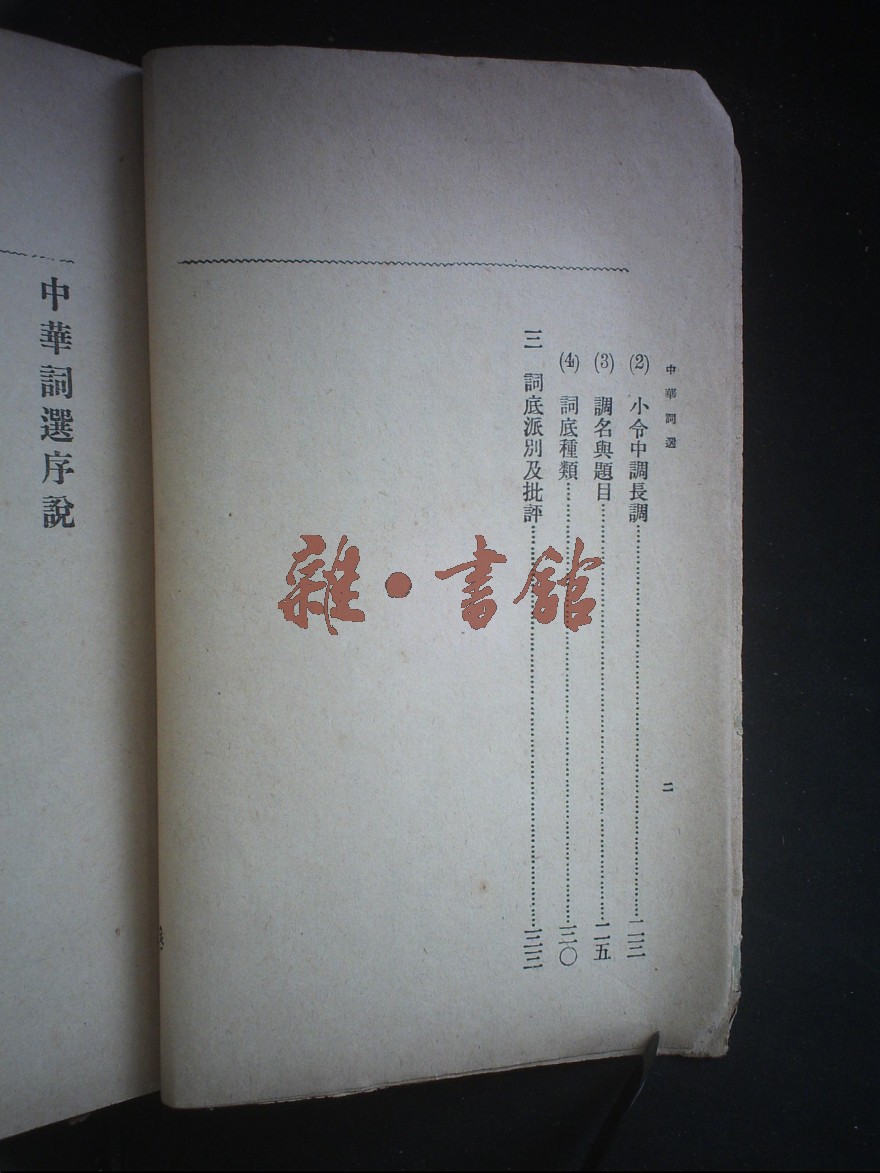 中華詞選
二
(2) 小令中調長調……二三
(3) 調名與題目……二五
(4) 詞底種類……三〇
三 詞底派別及批評……三三
中華詞選序說
雜·書館